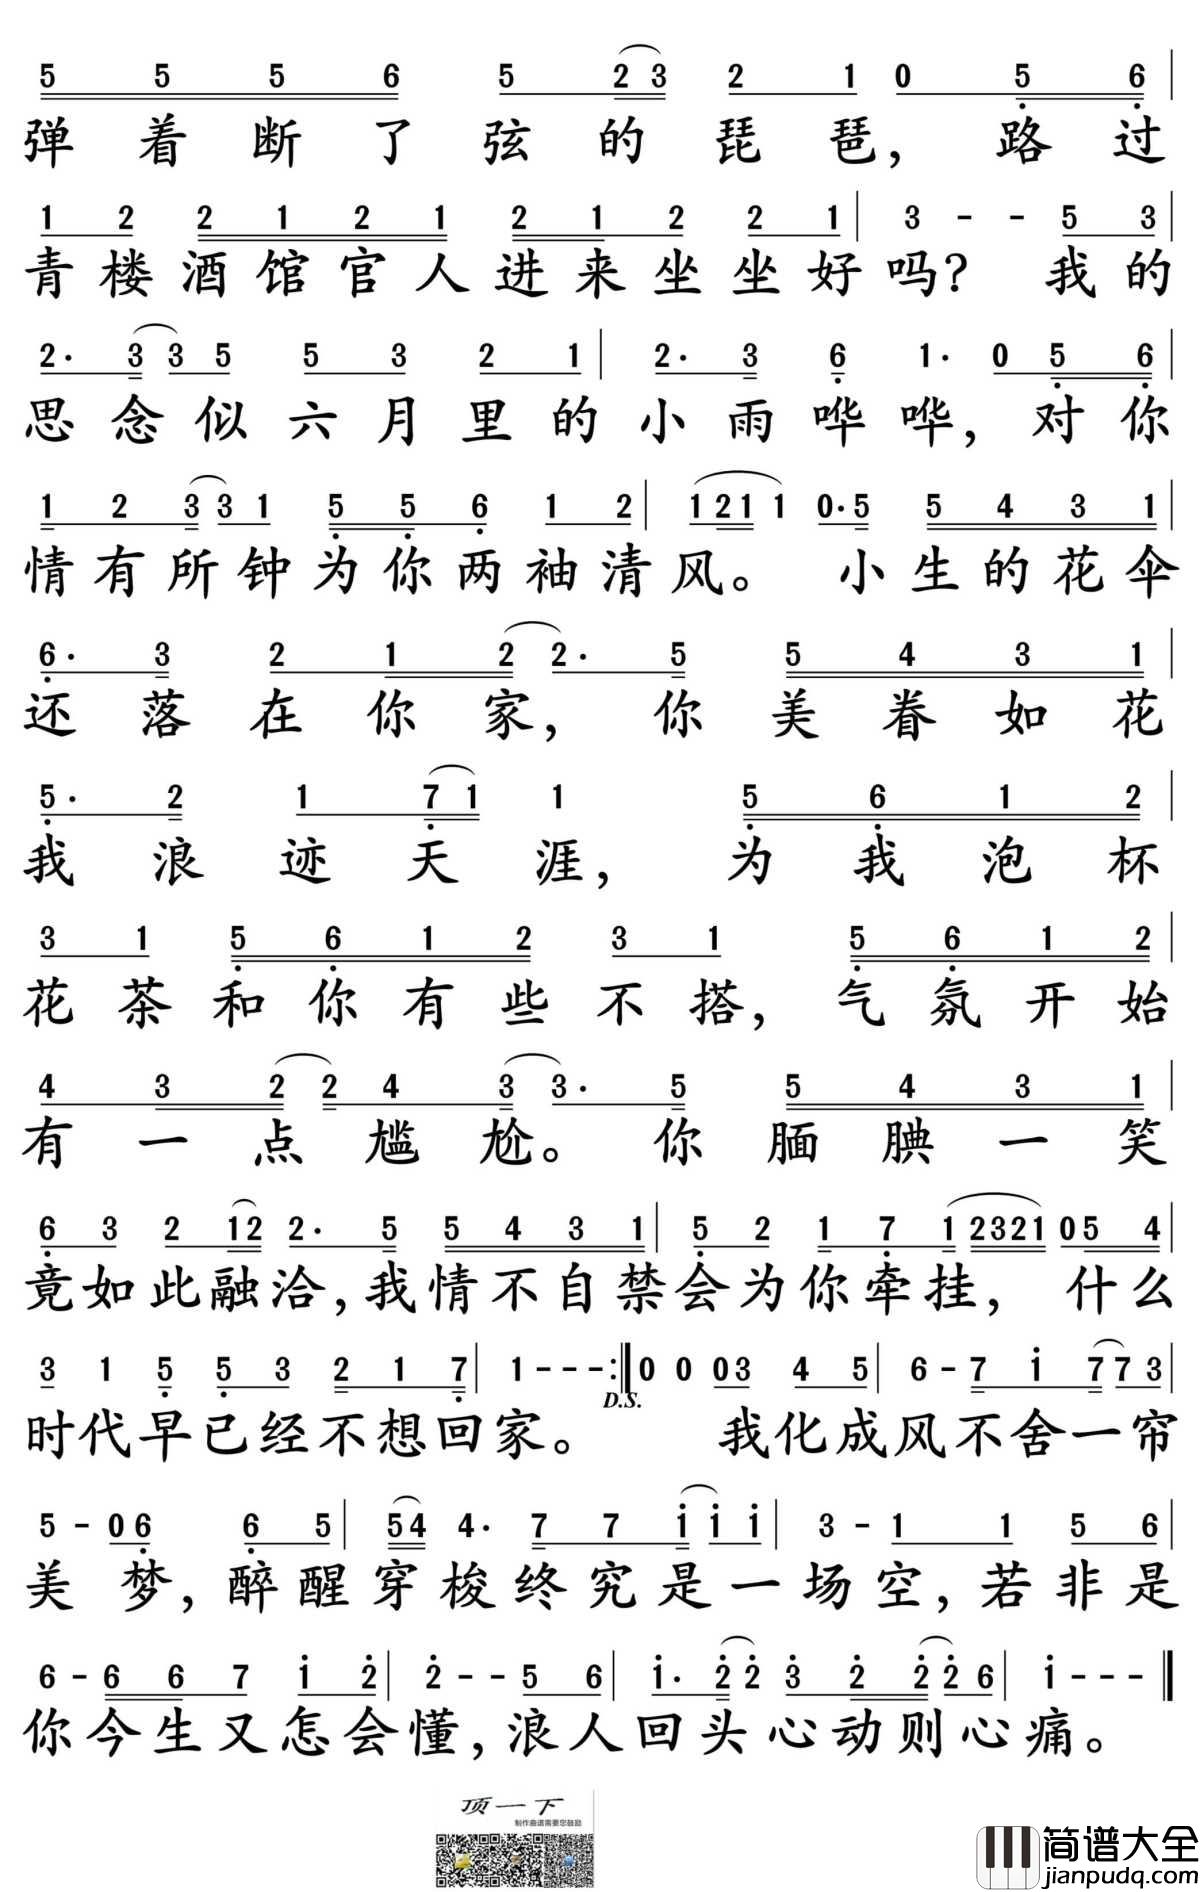 5 5 5 6 5 2 3 2 1 0 5 6
弹着断了弦的琵琶，路过
1 2 2 1 2 1 2 1 2 2 1 3 - - 5 3
青楼酒馆官人进来坐坐好吗？我的
2· 3 3 5 5 3 2 1 2· 3 6 1· 0 5 6
思念似六月里的小雨哗哗，对你
1 2 3 3 1 5 5 6 1 2 1 2 1 1 0· 5 5 4 3 1
情有所钟为你两袖清风。小生的花伞
6· 3 2 1 2 2· 5 5 4 3 1
还落在你家，你美眷如花
5· 2 1 7 1 1 5 6 1 2
我浪迹天涯，为我泡杯
3 1 5 6 1 2 3 1 5 6 1 2
花茶和你有些不搭，气氛开始
4 3 2 2 4 3 3· 5 5 4 3 1
有一点尴尬。你腼腆一笑
6 3 2 1 2 2· 5 5 4 3 1 5 2 1 7 1 2 3 2 1 0 5 4
竟如此融洽，我情不自禁会为你牵挂，什么
3 1 5 5 3 2 1 7 1 - - - :‖ 0 0 0 3 4 5 6 - 7 1 7 7 3
D.S.
时代早已经不想回家。我化成风不舍一帘
5 - 0 6 6 5 5 4 4· 7 7 1 1 1 3 - 1 1 5 6
美梦，醉醒穿梭终究是一场空，若非是
6 - 6 6 7 1 2 2 - - 5 6 1· 2 2 3 2 2 2 6 1 - - -
你今生又怎会懂，浪人回头心动则心痛。
顶一下
制作曲谱需要您鼓励
简谱大全
jianpudq.com